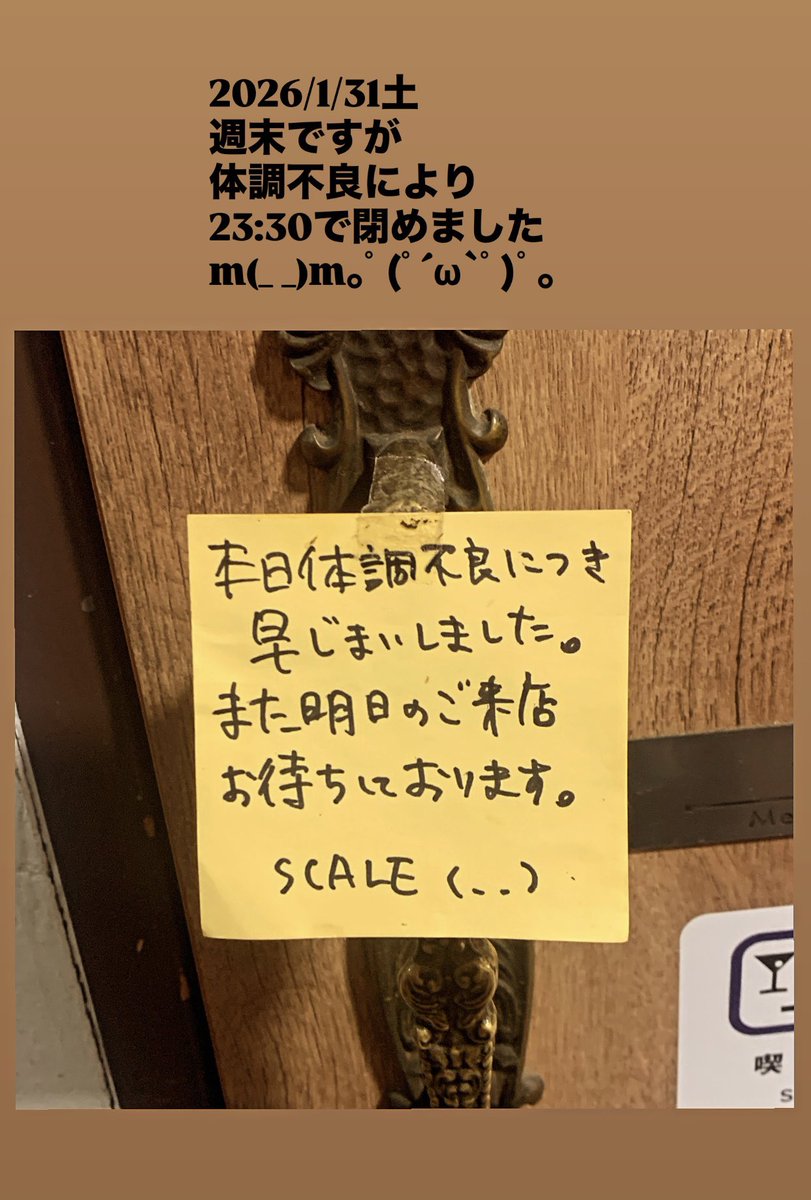 2026/1/31土
週末ですが
体調不良により
23:30で閉めました
m(_ _)m｡ﾟ(ﾟ´ω`ﾟ)ﾟ｡
本日体調不良につき
早じまいしました。
また明日のご来店
お待ちしております。
SCALE (. .)
喫